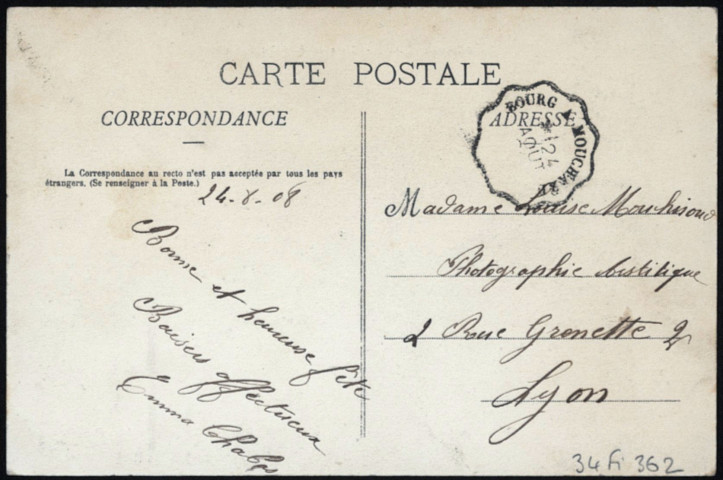 CARTE POSTALE
CORRESPONDANCE
ADRESSE
BOURG A MOUCHARD
24
AOUT
La Correspondance au recto n'est pas acceptée par tous les pays
étrangers. (Se renseigner à la Poste.)
24-8-08
Bonne et heureuse fête
Baisers affectueux
Emma
Madame Louise
Photographie Artistique
2 Rue Grenette 2
Lyon
34 Fi 362